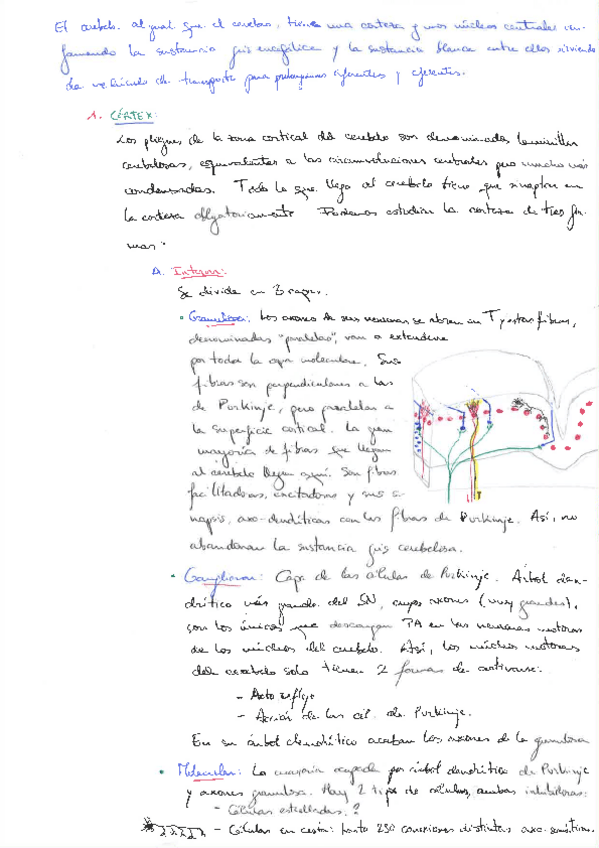 El cerebelo, al igual que el cerebro, tiene una corteza y unos núcleos centrales con-
formando la sustancia gris encefálica y la sustancia blanca entre ellos sirviendo
de vehículo de transporte para aferentes y eferentes.
1. CÓRTEX:
Los pliegues de la zona cortical del cerebelo son denominados laminillas
cerebelosas, equivalentes a las circunvoluciones cerebrales pero mucho más
condensadas. Todo lo que llega al cerebelo tiene que sinaptar en
la corteza obligatoriamente. Podemos estudiar la corteza de tres for-
mas:
A. Interna:
Se divide en 3 capas.
• Granulosa: Los axones de sus neuronas se abren en T y estas fibras,
denominadas "paralelas", van a extenderse
por toda la capa molecular. Sus
fibras son perpendiculares a las
de Purkinje, pero paralelas a
la superficie cortical. La gran
mayoría de fibras que llegan
al cerebelo llegan aquí. Son fibras
facilitadoras, excitadoras y sus si-
napsis, axo-dendríticas con las fibras de Purkinje. Así, no
abandonan la sustancia gris cerebelosa.
• Ganglionar: Capa de las células de Purkinje. Árbol den-
drítico más grande del SN, cuyos axones (muy grandes),
son los únicos que descargan PA en las neuronas motoras
de los núcleos del cerebelo. Así, los núcleos motores
del cerebelo solo tienen 2 formas de activarse:
- Acto reflejo
- Acción de las cél. de Purkinje.
En su árbol dendrítico acaban los axones de la granulosa
• Molecular: La mayoría ocupada por árbol dendrítico de Purkinje
y axones granulosa. Hay 2 tipos de células, ambas inhibidoras:
- Células estrelladas. ?
- Células en cesta: hasta 250 conexiones distintas axo-somáticas.